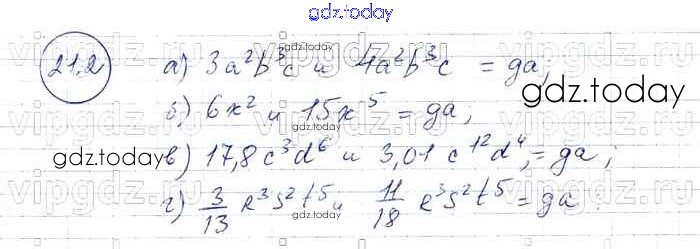 gdz.today
21.2 а) 3a²b³c и 4a²b³c = да;
gdz.today
б) 6x² и 15x⁵ = да,
gdz.today в) 17,8 c³d⁶ и 3,01 c¹²d⁴, = да;
г) 3/13 k³s²t⁵ и 11/18 k³s²t⁵ = да
gdz.today